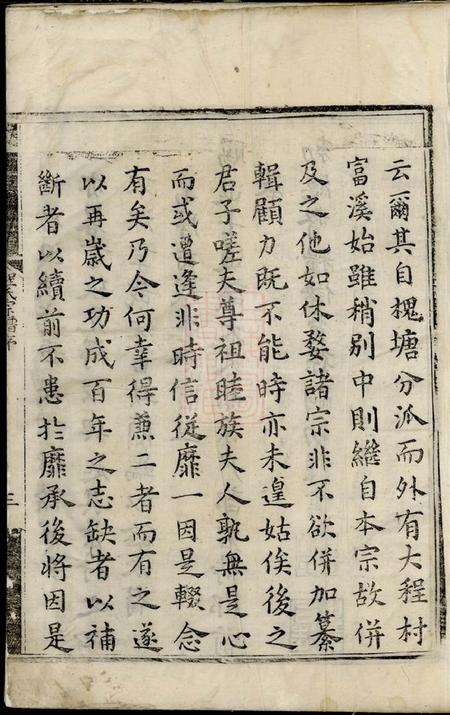 云爾其自槐塘分派而外有大程村
富溪始雖稍別中則繼自本宗故併
及之他如休婺諸宗非不欲併加纂
輯顧力既不能時亦未遑姑俟後之
君子嗟夫尊祖睦族夫人孰無是心
而或遭逢非時信從靡一因是輟念
有矣乃今何幸得兼二者而有之遂
以再歲之功成百年之志缺者以補
斷者以續前不患於靡承後將因是
程氏宗譜序
三